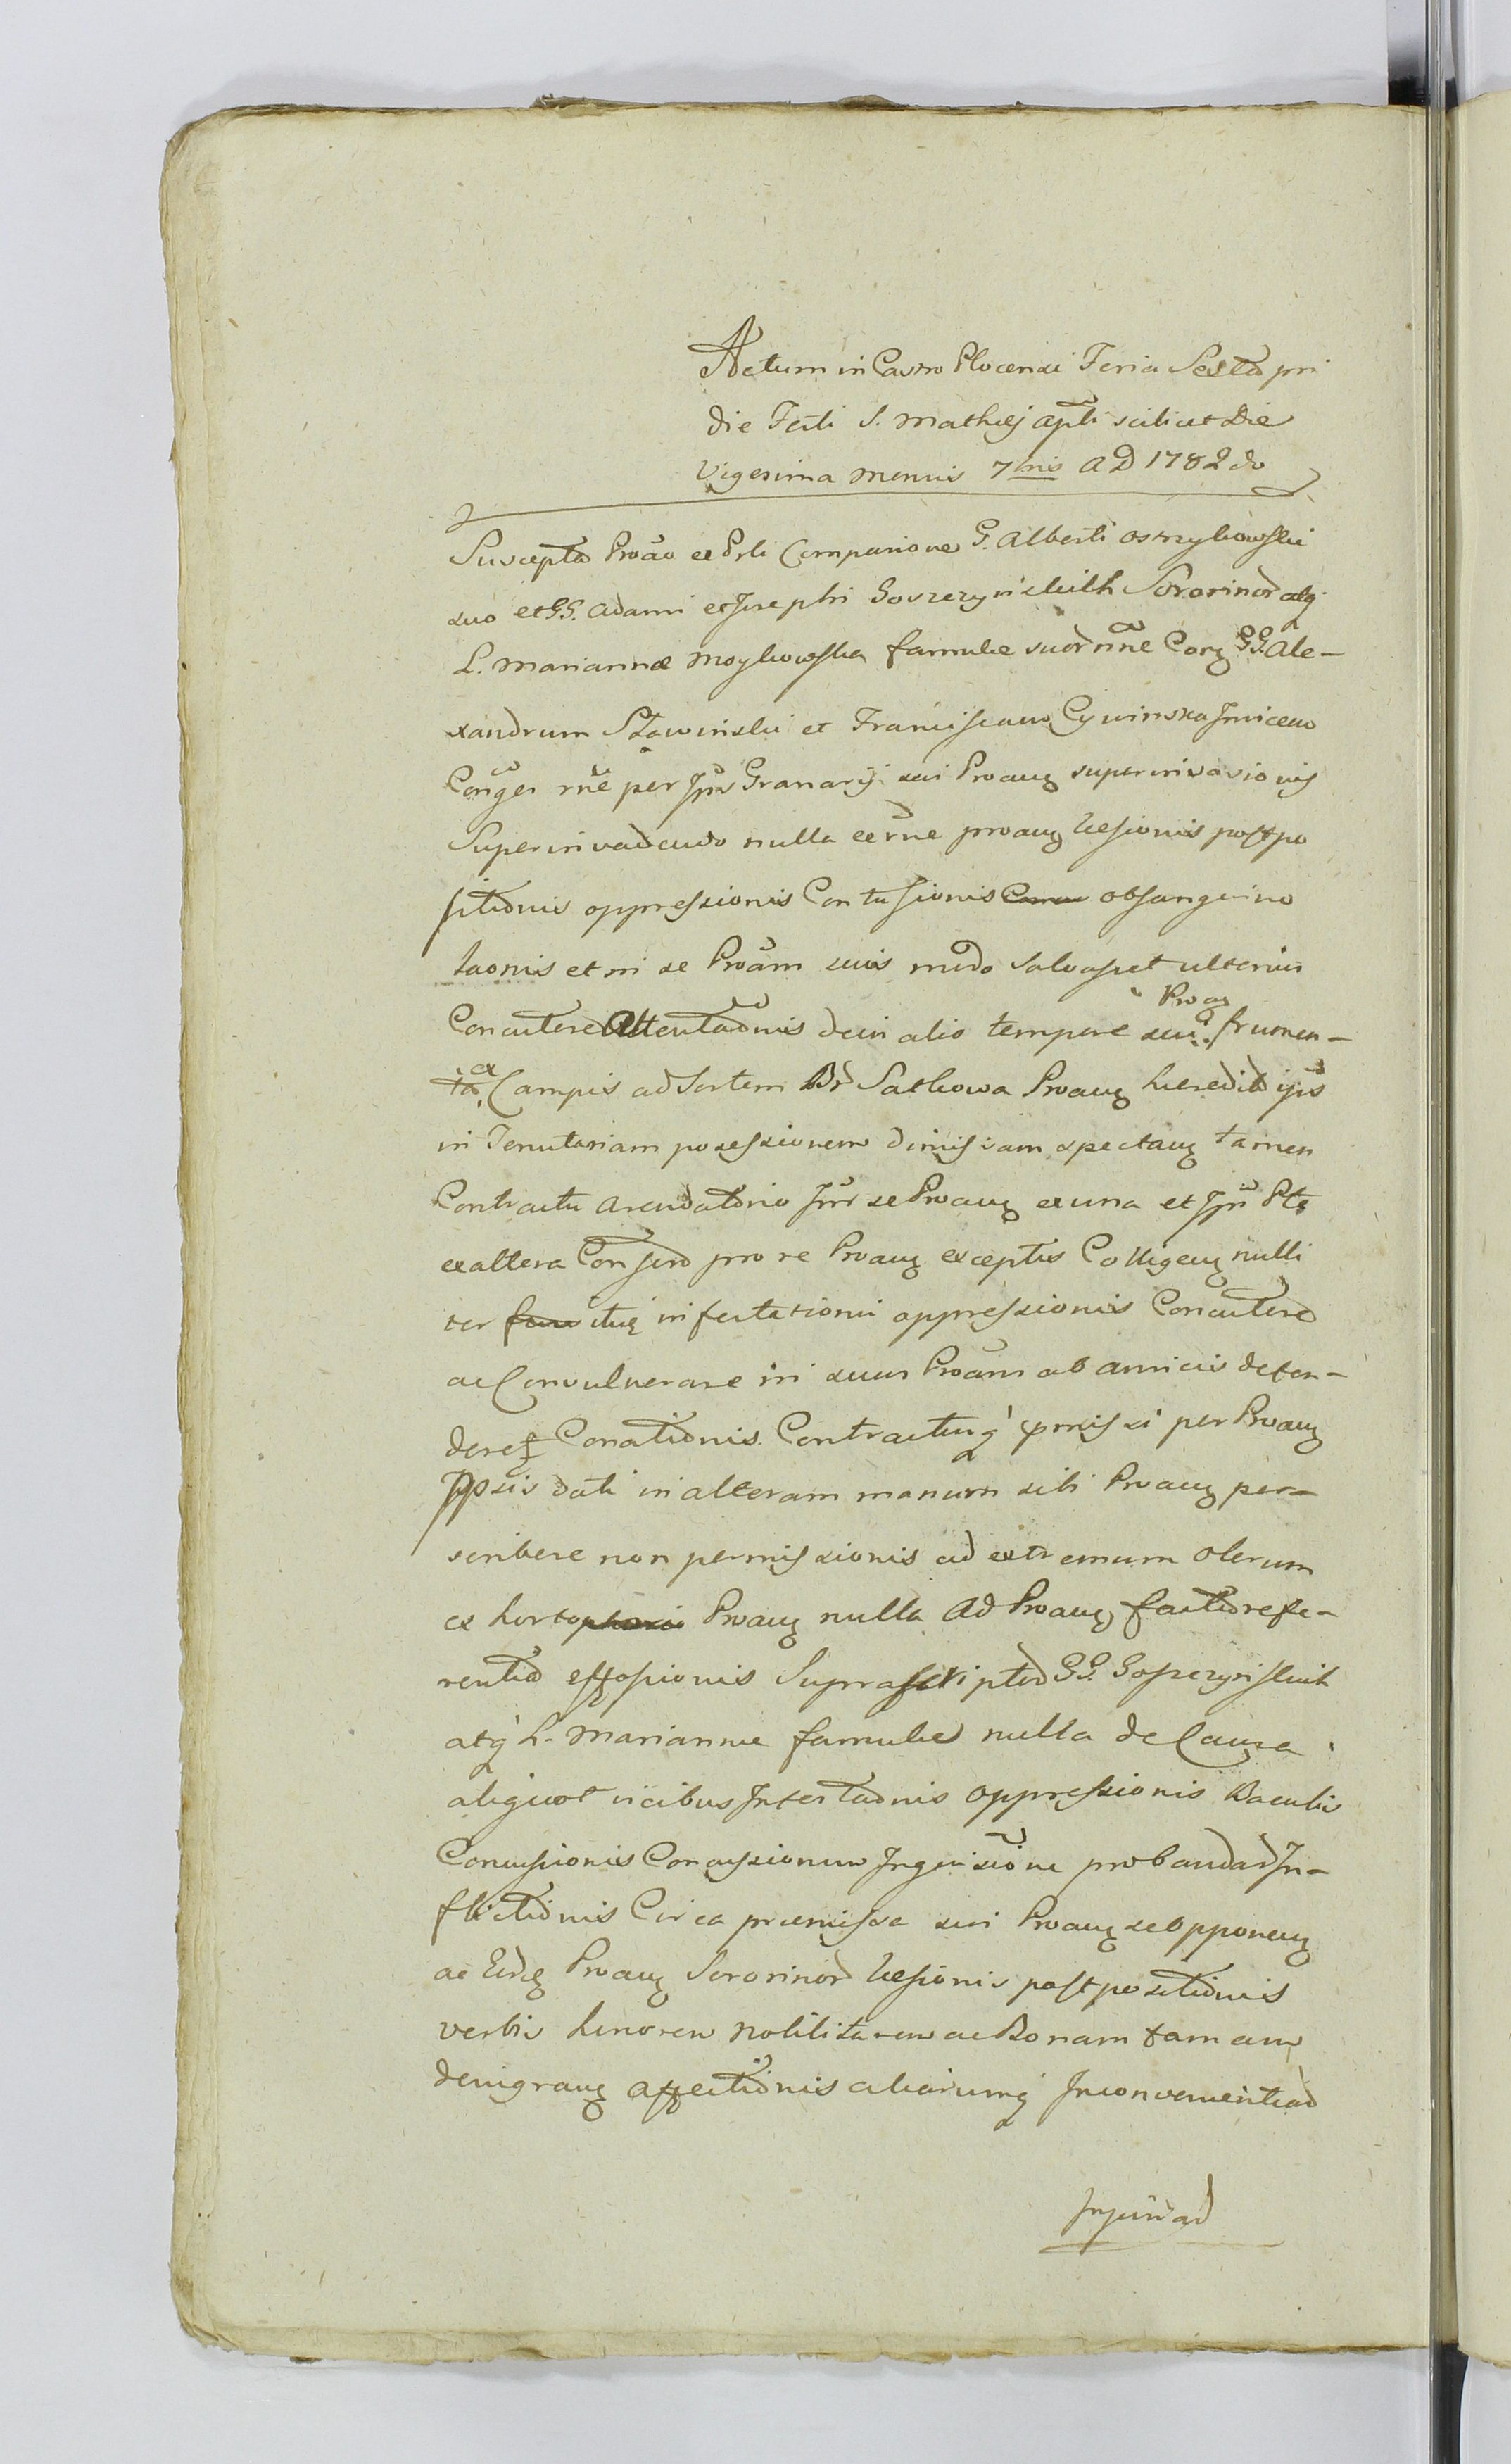 Actum in Castro Plocensi Feria Sexta pri
die Festi S. Mathej Apli scilicet Die
Vigesima Mensis 7bris AD 1782do
Suscepta Proao ex Prli Comparione G. Alberti Ostrzykowski
suo et GG. Adami et Josephi Goszczynskich Sororinor atq
L. Mariannæ Moykowska famulæ suor nne Corg GG. Ale-
xandrum Sławinski et Franciscam Cywinska Invicem
Conges rne per Ipis Granarij sui Proang superinvasionis
Superinvadendo nulla ee rne proang læsionis postpo
sitionis oppressionis Contusionis obsanguino
laonis et ni se Proam suis modo salvasset ulterius
Concutere Attentaonis dein alio tempore sua Proag frumen-
ta ex Campis ad Sortem Br Sathowa Proang hæredit ipis
in Tenutariam possessionem dimissam spectang tamen
Contractu arendatorio Intr se Proang ex una et Ipis Pte
ex altera Conferto pro re Proang exceptis Colligeng nulli
ter itu infestationis oppressionis Concutere
ac Convulnerare ni suus Proans ab amicis defen-
deret Conationis Contractusq pmissi per Proang
Ippsis dati in alteram manum sibi Proang per-
scribere non permissionis ad extremum olerum
ex horto Proang nulla ad Proang facta refe-
rentia effossionis Suprascriptor GG. Goszczynskich
atq L. Mariannæ famulæ nulla de Causa
aliquot vicibus Infestaonis oppressionis Baculis
Concussionis Concussionum Inquisione probandar In-
flictionis Circa præmissa sui Proang se opponeng
ac Eidē Proang Sororinor læsionis postpositionis
verbis honorem nobilitatem ac Bonam famam
denigrang affectionis aliarumq Inconvenientiar
Injuriar